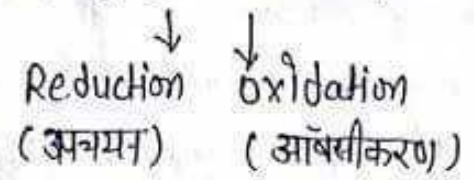 Reduction Oxidation
(अपचयन) (ऑक्सीकरण)